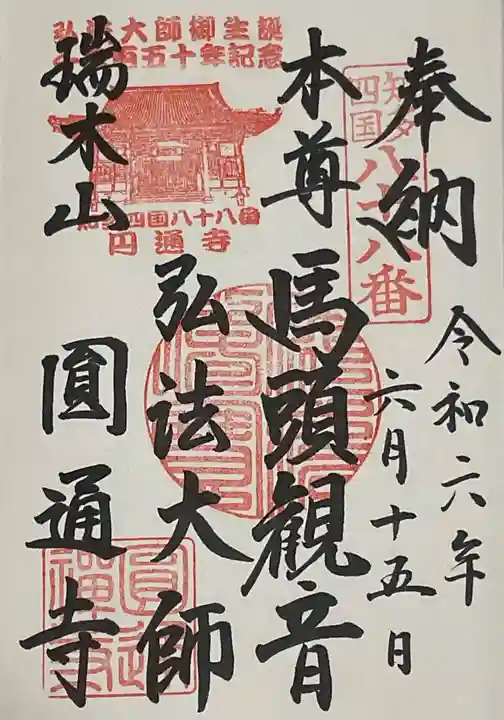 奉納
令和六年
六月十五日
知多
四国
八十八番
本尊 馬頭観音
弘法大師
瑞木山 圓通寺
弘法大師御生誕
千二百五十年記念
知多四国八十八番
円通寺